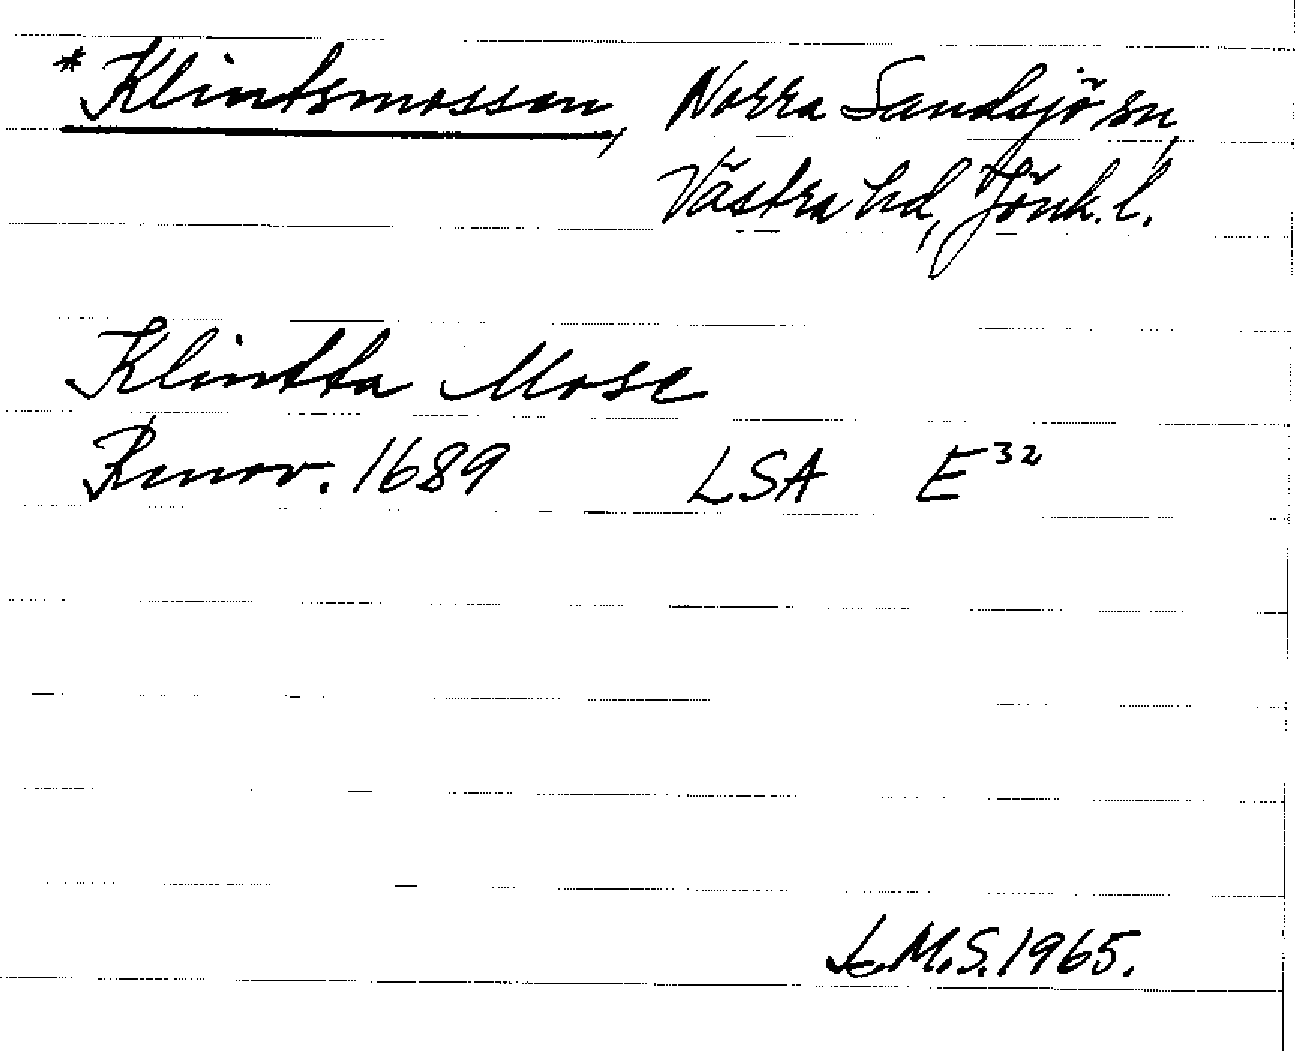 *Klintsmossen, Norra Sandsjö sn,
Västra hd, Jönk. l.
Klintta Mose
Renov. 1689 LSA E³²
L.M.S. 1965.